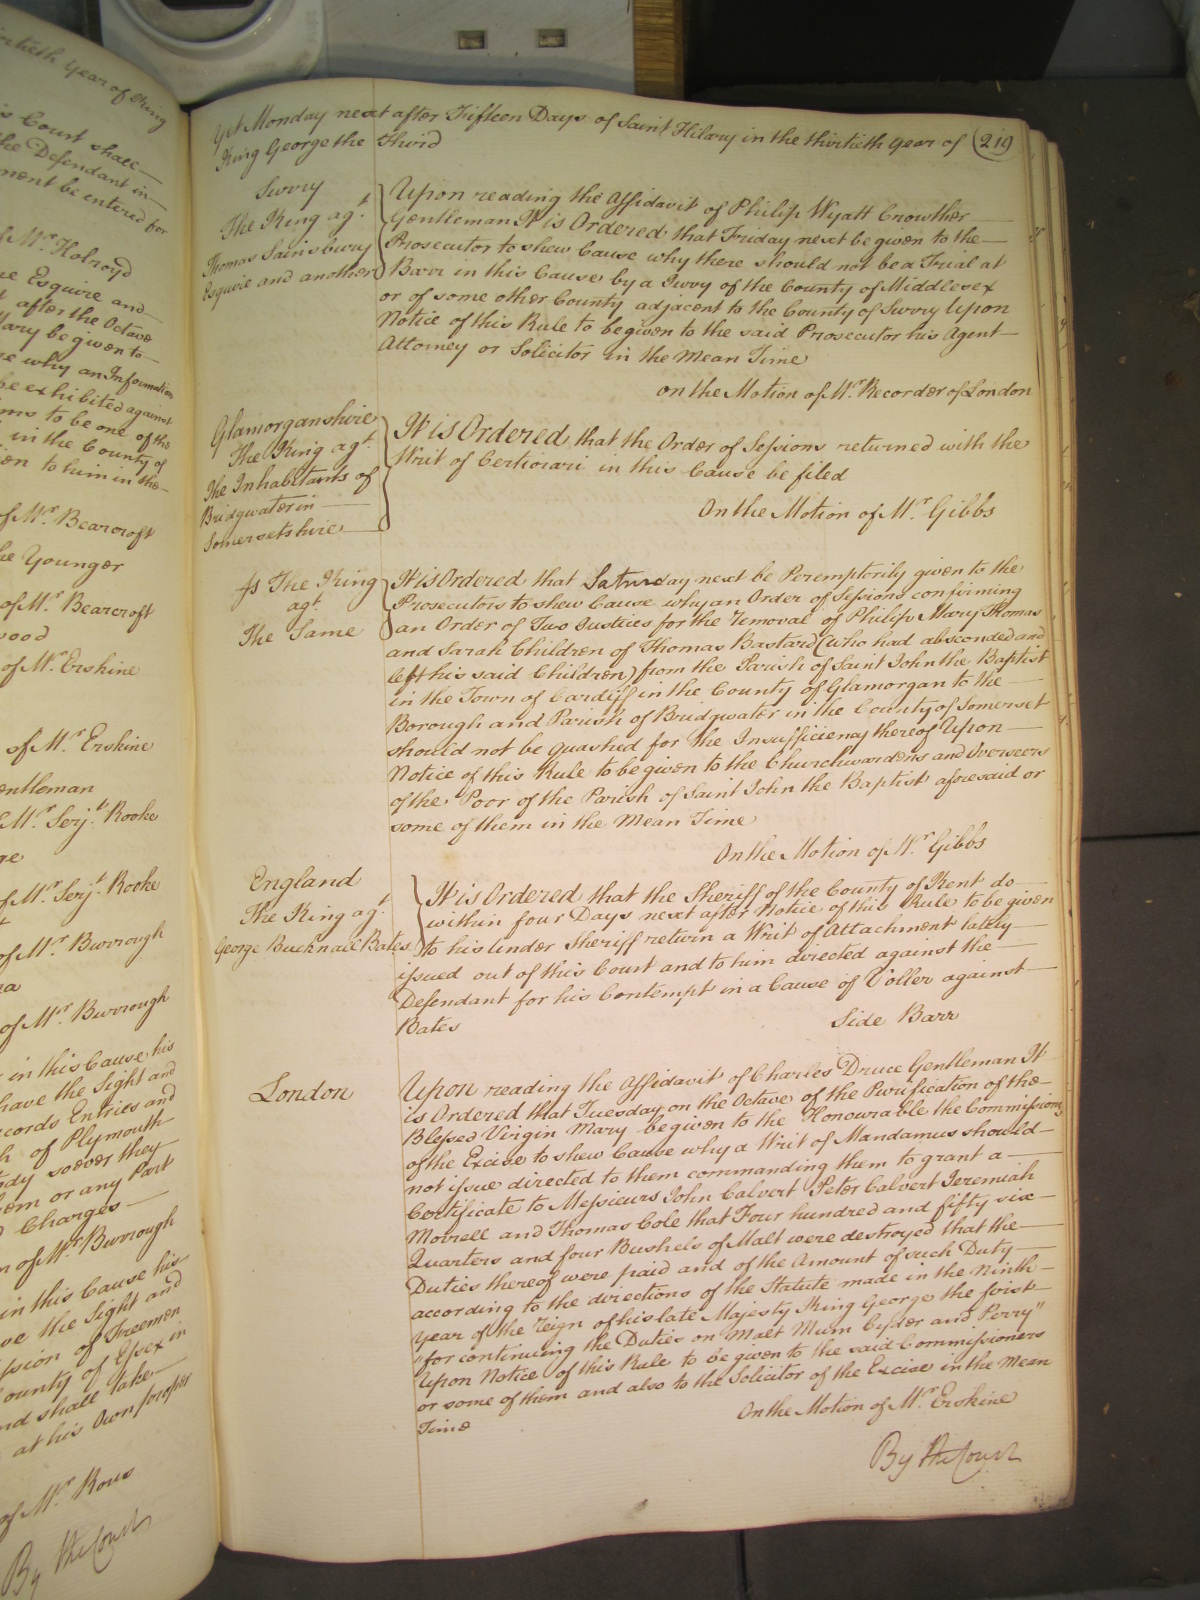 intieth Year of King
is Court shall
the Defendant in
ment be entered for
of Mr. Holroyd
Esquire and
after the Octave
Mary be given to
why an Information
be exhibited against
to be one of the
in the County of
to him in the
of Mr. Bearcroft
he Younger
of Mr. Bearcroft
wood
of Mr. Erskine
of Mr. Erskine
entleman
Mr. Serjt. Rooke
ge
of Mr. Serjt. Rooke
of Mr. Burrough
of Mr. Burrough
in this Cause his
have the Sight and
cords Entries and
of Plymouth
soever they
or any Part
Charges
of Mr. Burrough
in this Cause his
the Sight and
of Freemen
County of Essex in
and shall take
at his Own proper
of Mr. Rous
By the Court
Yet Monday next after Fifteen Days of Saint Hilary in the thirtieth Year of (219)
King George the Third
Surry
The King agt.
Thomas Sainsbury
Esquire and another
Upon reading the Affidavit of Philip Wyatt Crowther
Gentleman It is Ordered that Friday next be given to the
Prosecutor to shew Cause why there should not be a Trial at
Barr in this Cause by a Jury of the County of Middlesex
or of some other County adjacent to the County of Surry Upon
Notice of this Rule to be given to the said Prosecutor his Agent
Attorney or Solicitor in the Mean Time
on the Motion of Mr. Recorder of London
Glamorganshire
The King agt.
the Inhabitants of
Bridgwater in
Somersetshire
It is Ordered that the Order of Sessions returned with the
Writ of Certiorari in this Cause be filed
On the Motion of Mr. Gibbs
fs The King
agt.
The Same
It is Ordered that Saturday next be Peremptorily given to the
Prosecutors to shew Cause why an Order of Sessions confirming
an Order of Two Justices for the removal of Philip Mary Thomas
and Sarah Children of Thomas Bastard (who had absconded and
left his said Children) from the Parish of Saint John the Baptist
in the Town of Cardiff in the County of Glamorgan to the
Borough and Parish of Bridgwater in the County of Somerset
should not be quashed for the Insufficiency thereof Upon
Notice of this Rule to be given to the Churchwardens and Overseers
of the Poor of the Parish of Saint John the Baptist aforesaid or
some of them in the Mean Time
On the Motion of Mr. Gibbs
England
The King agt.
George Bucknall Bates
It is Ordered that the Sheriff of the County of Kent do
within four Days next after Notice of this Rule to be given
to his Under Sheriff return a Writ of Attachment lately
issued out of this Court and to him directed against the
Defendant for his Contempt in a Cause of Voller against
Bates
Side Barr
London
Upon reading the Affidavit of Charles Druce Gentleman It
is Ordered that Tuesday on the Octave of the Purification of the
Blessed Virgin Mary be given to the Honourable the Commissioners
of the Excise to shew Cause why a Writ of Mandamus should
not issue directed to them commanding them to grant a
Certificate to Messieurs John Calvert Peter Calvert Jeremiah
Morrell and Thomas Cole that Four hundred and fifty six
Quarters and four Bushels of Malt were destroyed that the
Duties thereof were paid and of the Amount of such Duty
according to the directions of the Statute made in the Ninth
Year of the reign of his late Majesty King George the first
"for continuing the Duties on Malt Mum Cyder and Perry"
Upon Notice of this Rule to be given to the said Commissioners
or some of them and also to the Solicitor of the Excise in the Mean
Time
On the Motion of Mr. Erskine
By the Court